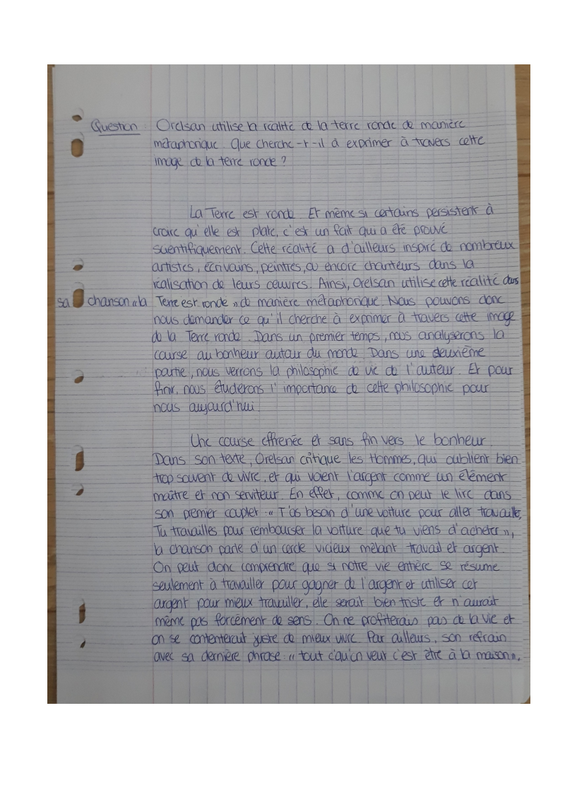 Question Orelsan utilise la réalité de la terre ronde de manière
métaphorique. Que cherche-t-il à exprimer à travers cette
image de la terre ronde ?
La Terre est ronde. Et même si certains persistent à
croire qu'elle est plate, c'est un fait qui a été prouvé
scientifiquement. Cette réalité a d'ailleurs inspiré de nombreux
artistes, écrivains, peintres, ou encore chanteurs dans la
réalisation de leurs œuvres. Ainsi, Orelsan utilise cette réalité dans
sa chanson « la Terre est ronde » de manière métaphorique. Nous pouvons donc
nous demander ce qu'il cherche à exprimer à travers cette image
de la Terre ronde. Dans un premier temps, nous analyserons la
course au bonheur autour du monde. Dans une deuxième
partie, nous verrons la philosophie de vie de l'auteur. Et pour
finir, nous étudierons l'importance de cette philosophie pour
nous aujourd'hui.
Une course effrénée et sans fin vers le bonheur.
Dans son texte, Orelsan critique les Hommes, qui oublient bien
trop souvent de vivre, et qui voient l'argent comme un élément
maître et non serviteur. En effet, comme on peut le lire dans
son premier couplet « T'as besoin d'une voiture pour aller travailler,
Tu travailles pour rembourser la voiture que tu viens d'acheter »,
la chanson parle d'un cercle vicieux mêlant travail et argent.
On peut donc comprendre que si notre vie entière se résume
seulement à travailler pour gagner de l'argent et utiliser cet
argent pour mieux travailler, elle serait bien triste et n'aurait
même pas forcément de sens. On ne profiterais pas de la vie et
on se contenterait juste de mieux vivre. Par ailleurs, son refrain
avec sa dernière phrase « tout c'qu'on veut c'est être à la maison »,